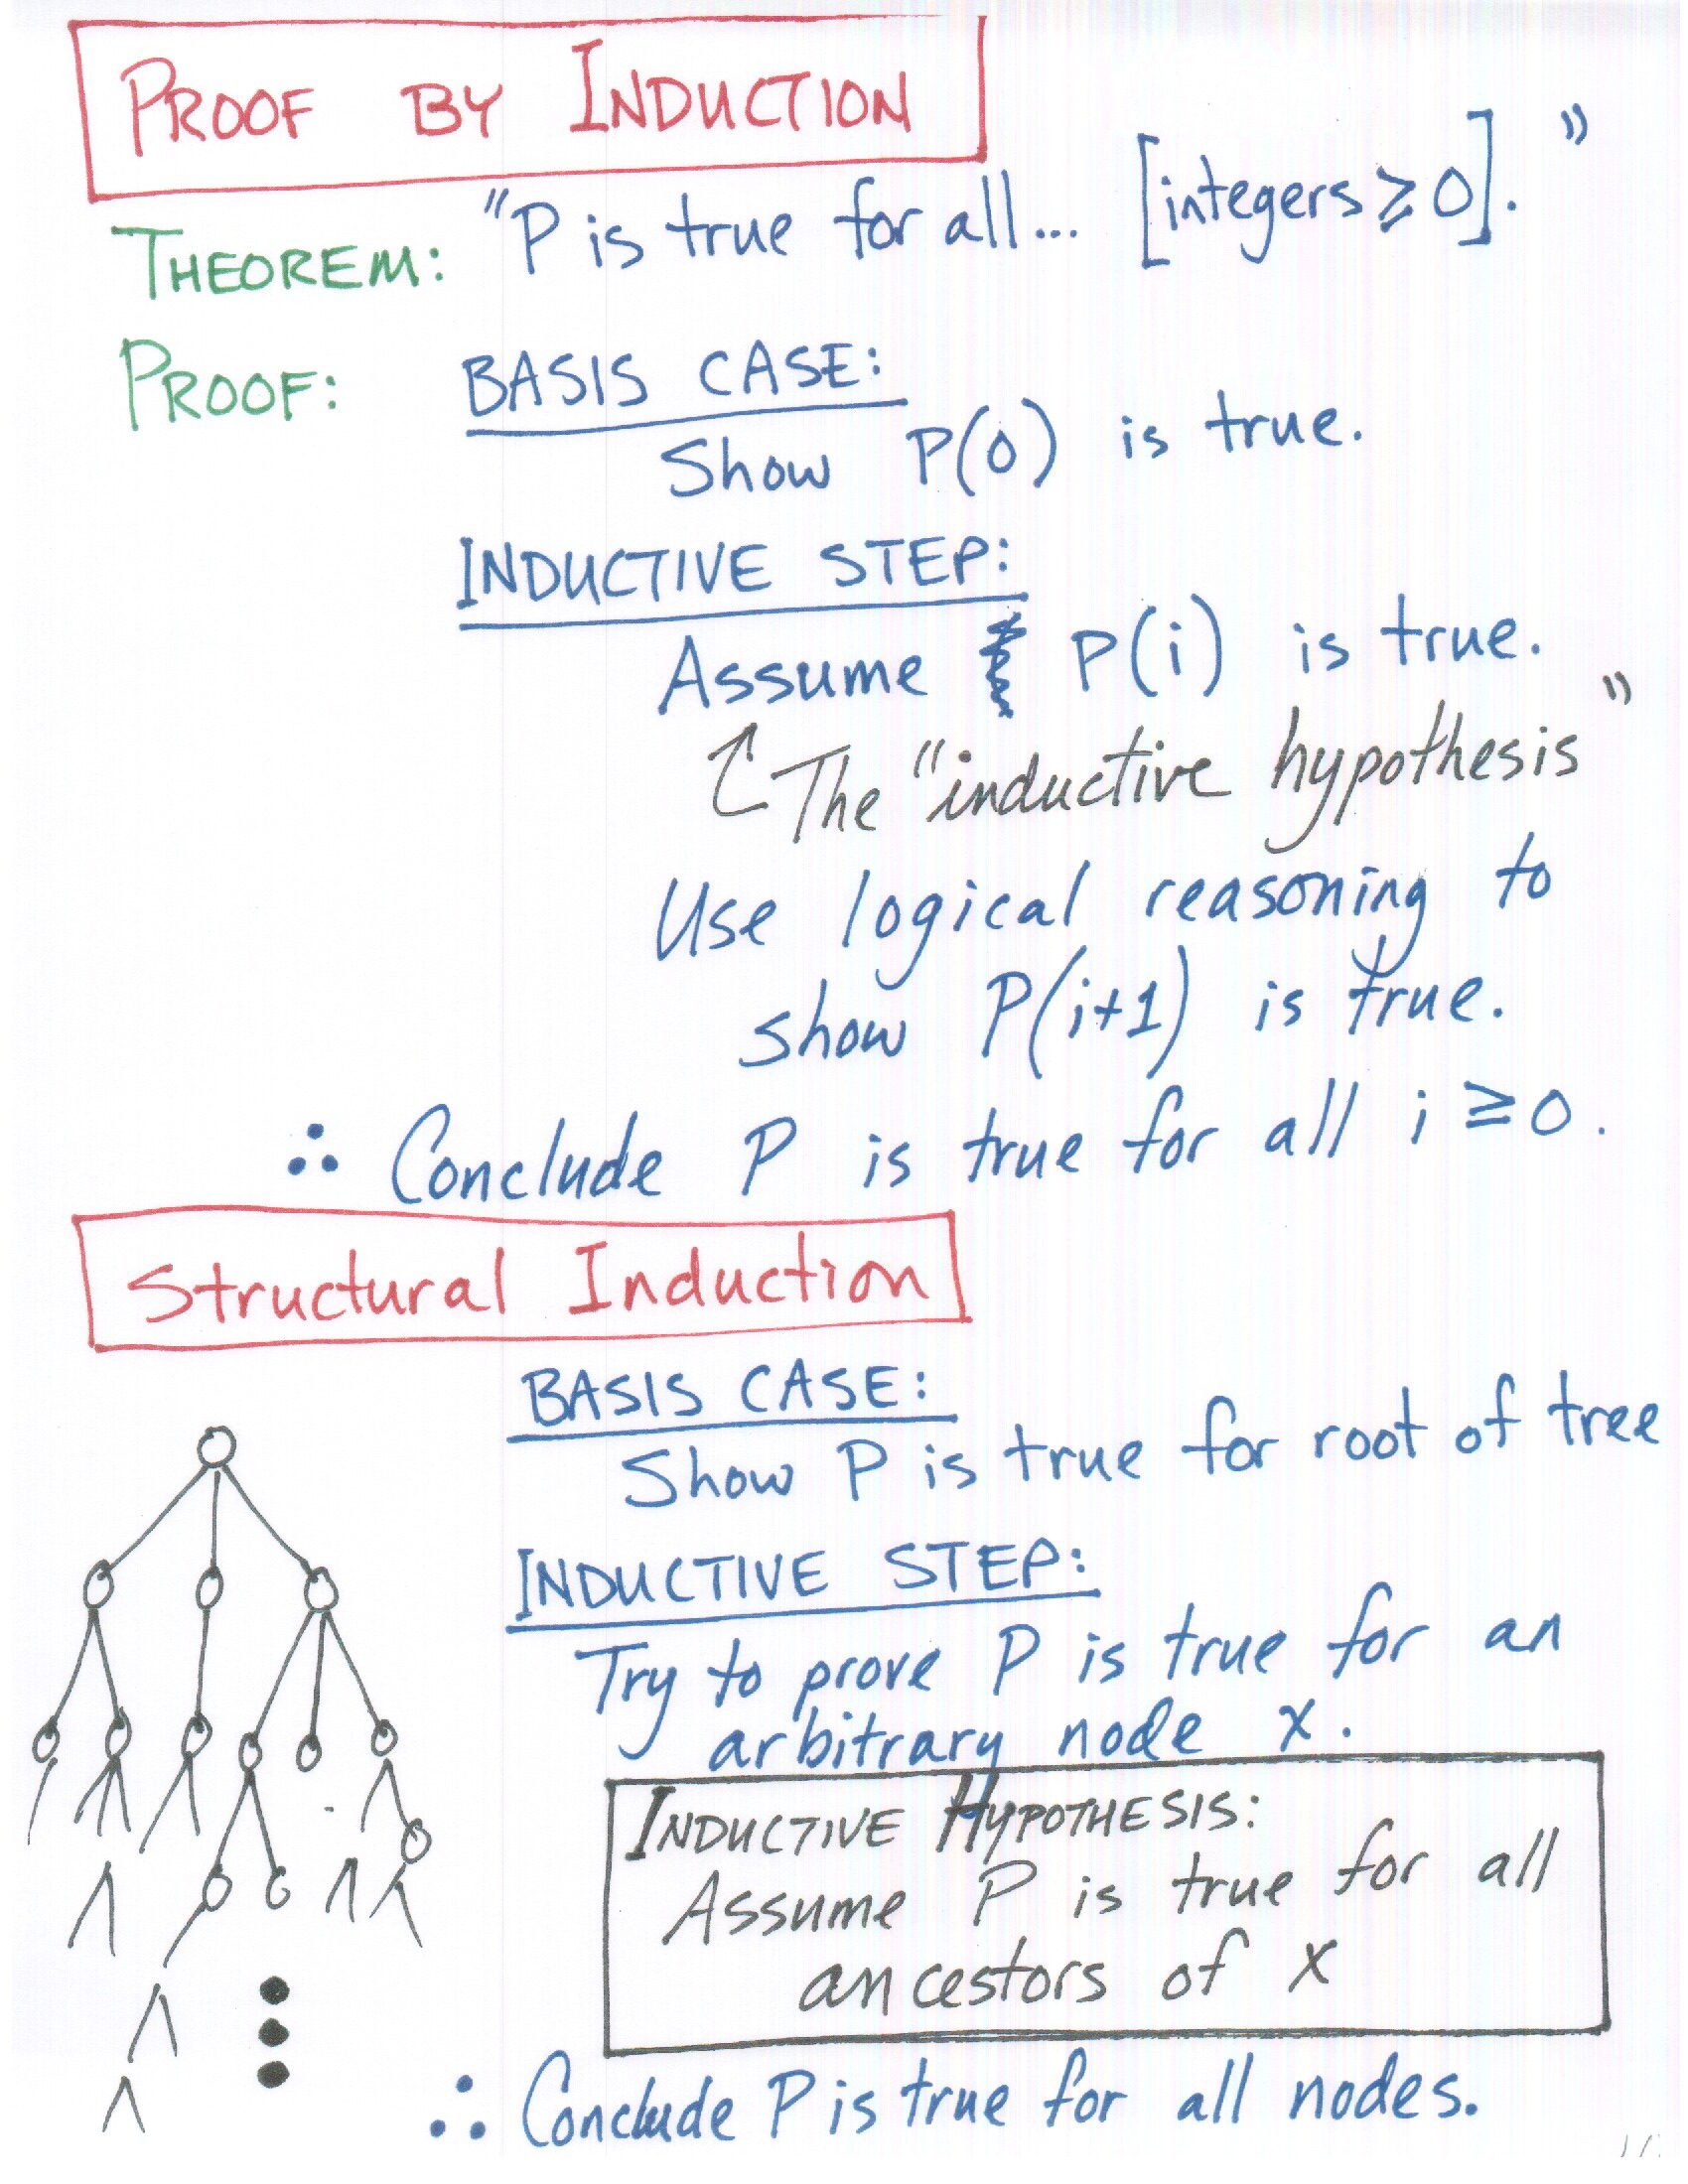 PROOF BY INDUCTION
THEOREM: "P is true for all... [integers ≥ 0]."
PROOF: BASIS CASE:
Show P(0) is true.
INDUCTIVE STEP:
Assume P(i) is true.
The "inductive hypothesis"
Use logical reasoning to
show P(i+1) is true.
∴ Conclude P is true for all i ≥ 0.
Structural Induction
BASIS CASE:
Show P is true for root of tree
INDUCTIVE STEP:
Try to prove P is true for an
arbitrary node x.
INDUCTIVE HYPOTHESIS:
Assume P is true for all
ancestors of x
∴ Conclude P is true for all nodes.